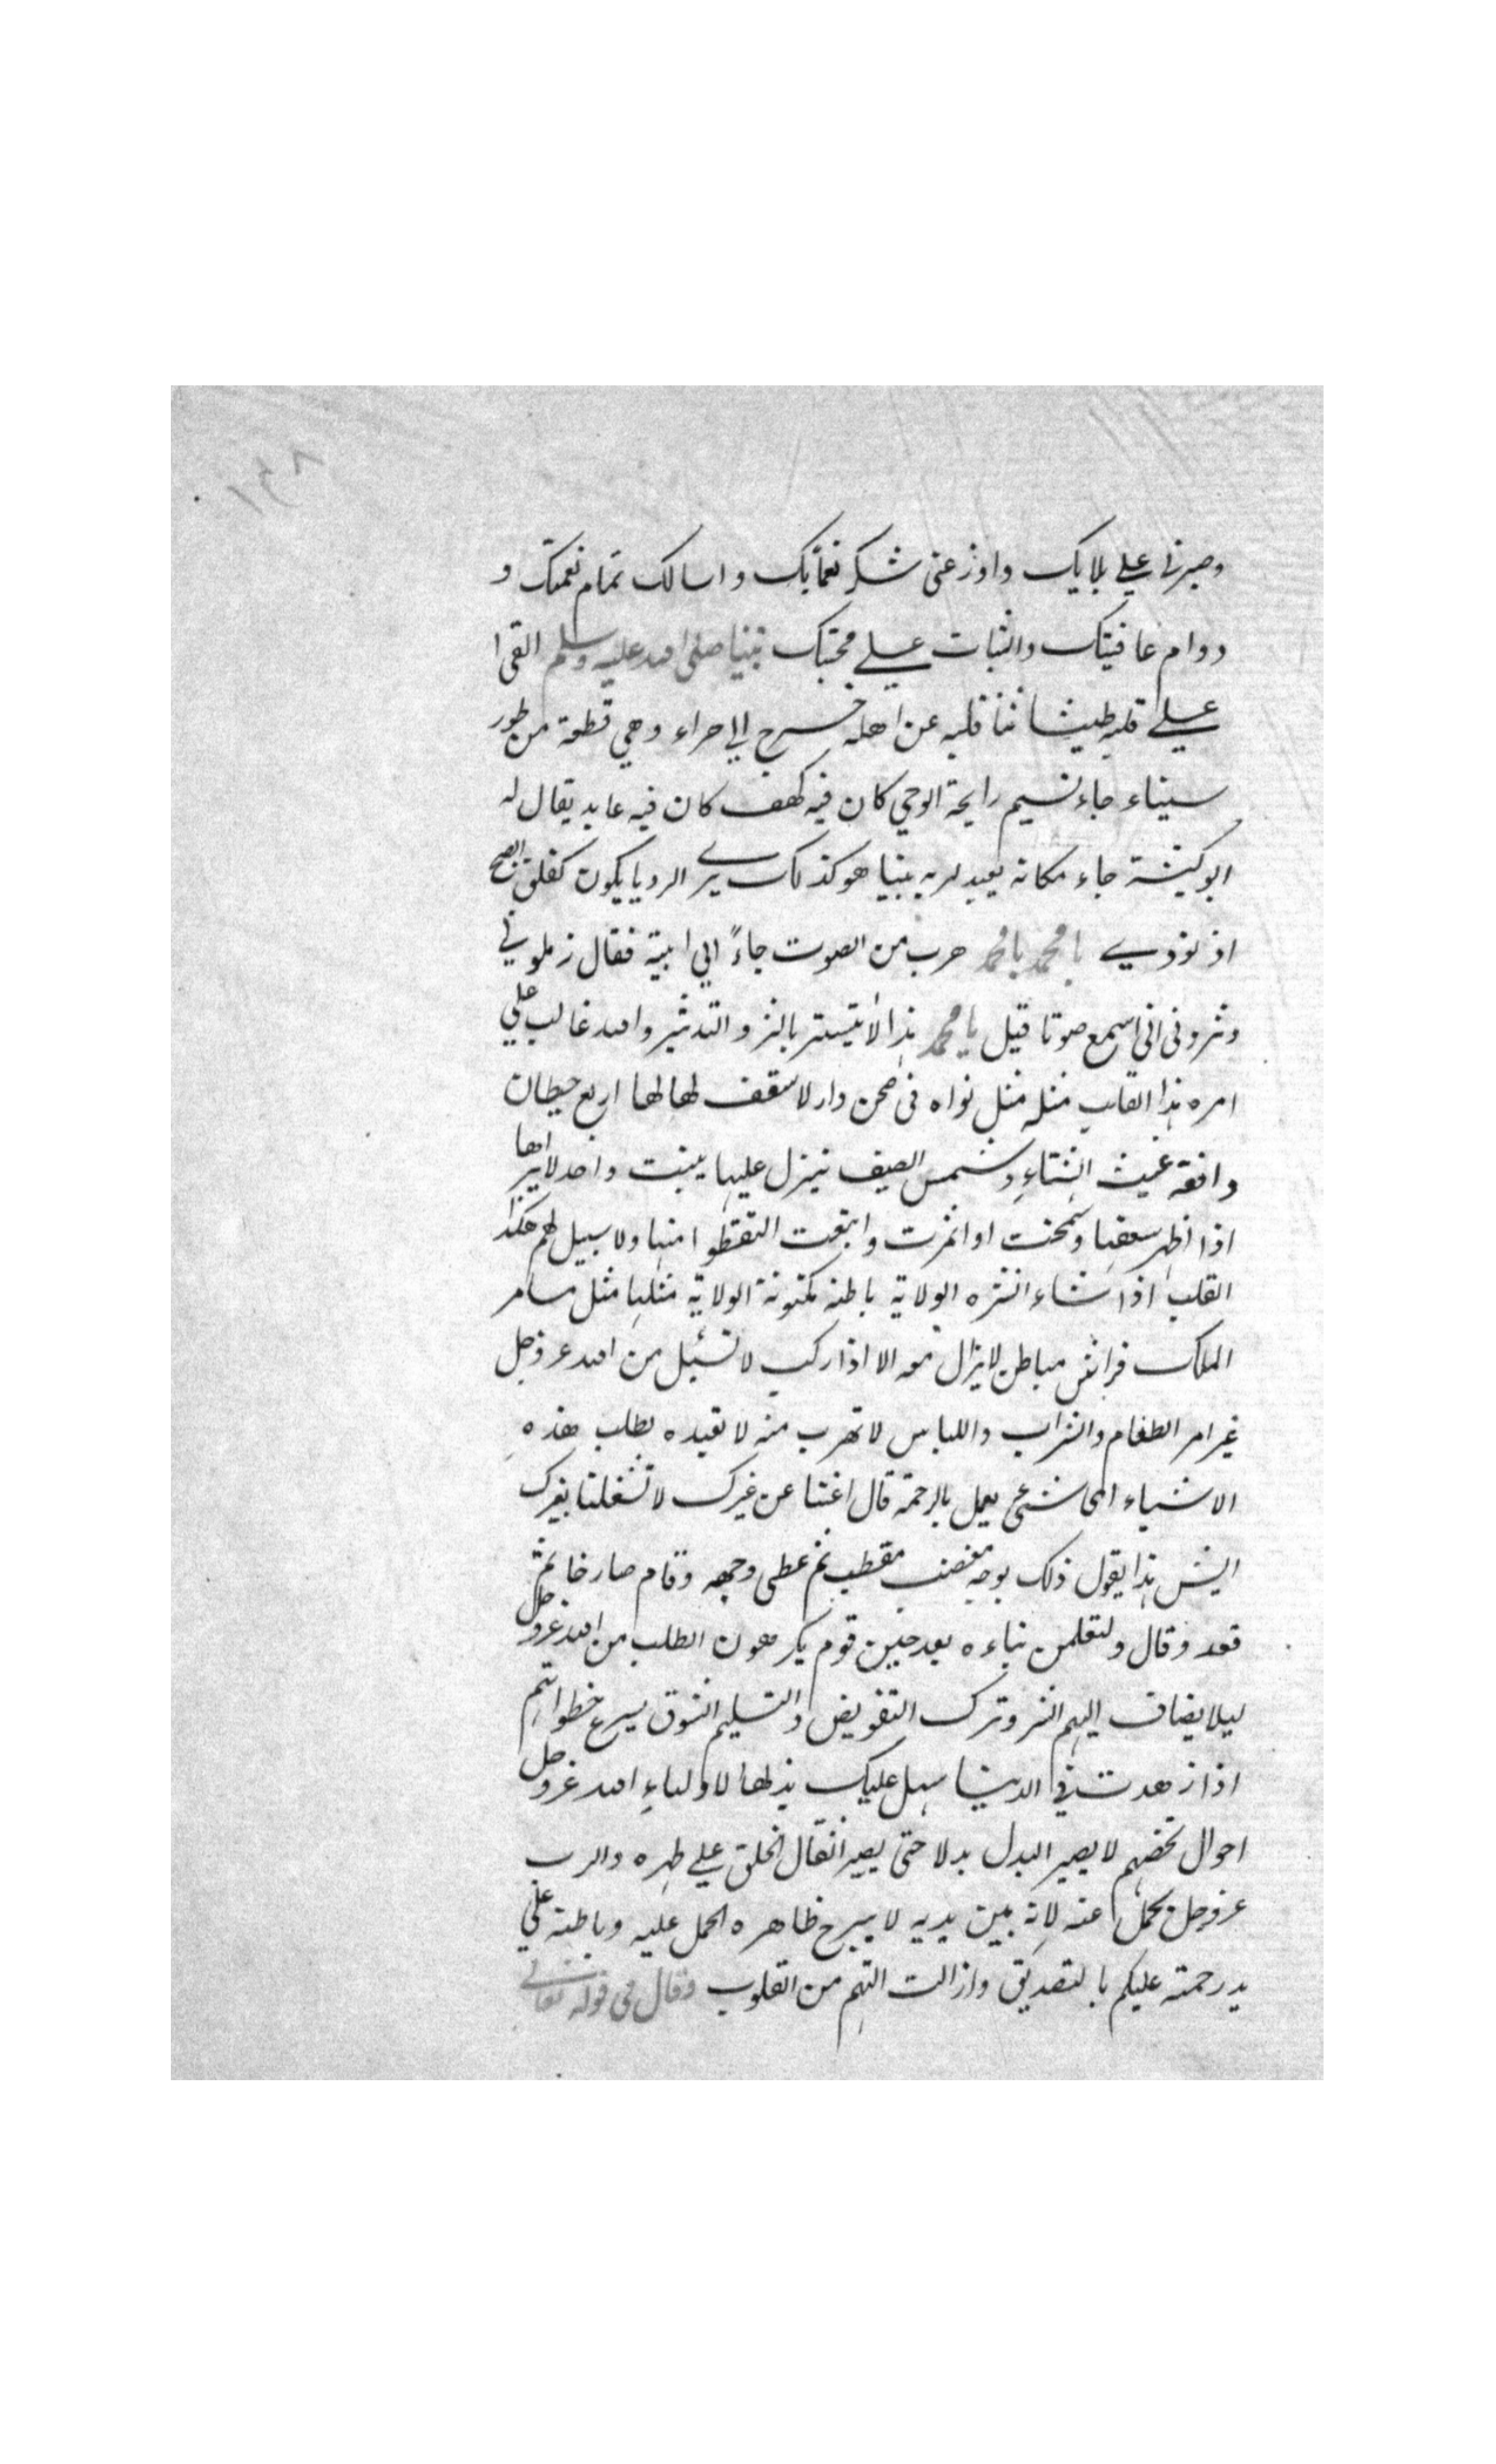 ١٣٨
وصبرنى على بلايك واوزعنى شكر نعمايك واسالك تمام نعمتك و
دوام عافيتك والثبات على محبتك نبينا صلى الله عليه وسلم القى ا
على قلبه طيشا نفا قلبه عن اهله خرج الى حراء وهي قطعة من طور
سيناء جاء نسيم رايحة الوحي كان فيه كهف كان فيه عابد يقال له
ابو كبشة جاء مكانه يعبد لربه بينا هو كذلك يرى الرويا يكون كفلق الصبح
اذ نودي يا محمد يا محمد هرب من الصوت جاءً الى ابيته فقال زملوني
وثرونى انى اسمع صوتا قيل يا محمد هذا لا يتستر بالتز و التدثير والله غالب على
امره هذا القلب مثله مثل نواه فى صحن دار لا سقف لها لها اربع حيطان
وافقه غيث الشتاء وشمس الصيف ينزل عليها ينبت واحد لا يراها
اذا اظهر سعفها وسمخت او اثمرت وابنعت التقطوا منها ولا سبيل لهم هكذا
القلب اذا شاء انشره الولاية باطنه مكنونة الولاية مثلها مثل مسامر
الملك فراش مباطن لا يزال معه الا اذا ركب لا تسئل من الله عز وجل
غير امر الطعام والشراب واللباس لا تهرب منه لا تعبده بطلب هذه
الاشياء الى شئ يعمل بالرحمة قال اغننا عن غيرك لا تشغلنا بغيرك
ايش هذا يقول ذلك بوجه مغضب مقطب ثم غطى وجهه وقام صارخا ثم
قعد وقال ولتعلمن نباءه بعد حين قوم يكرهون الطلب من الله عز وجل
ليلا يضاف اليهم الشر وترك التفويض والتسليم الشوق يسرع خطواتهم
اذا زهدت في الدنيا سهل عليك بذلها لاولياء الله عز وجل
احوال تخصهم لا يصير البدل بدلا حتى يصير اثقال الخلق على ظهره والرب
عز وجل يحمل عنه لانه بين يديه لا يبرح ظاهره الحمل عليه وباطنه على
يد رحمته عليكم بالتصديق وازالت التهم من القلوب وقال فى قوله تعالى